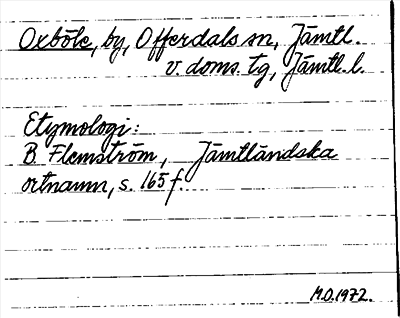 Oxböle, by, Offerdals sn, Jämtl.
v. doms. tg, Jämtl. l.
Etymologi:
B. Flemström, Jämtländska
ortnamn, s. 165 f.
M.O. 1972.